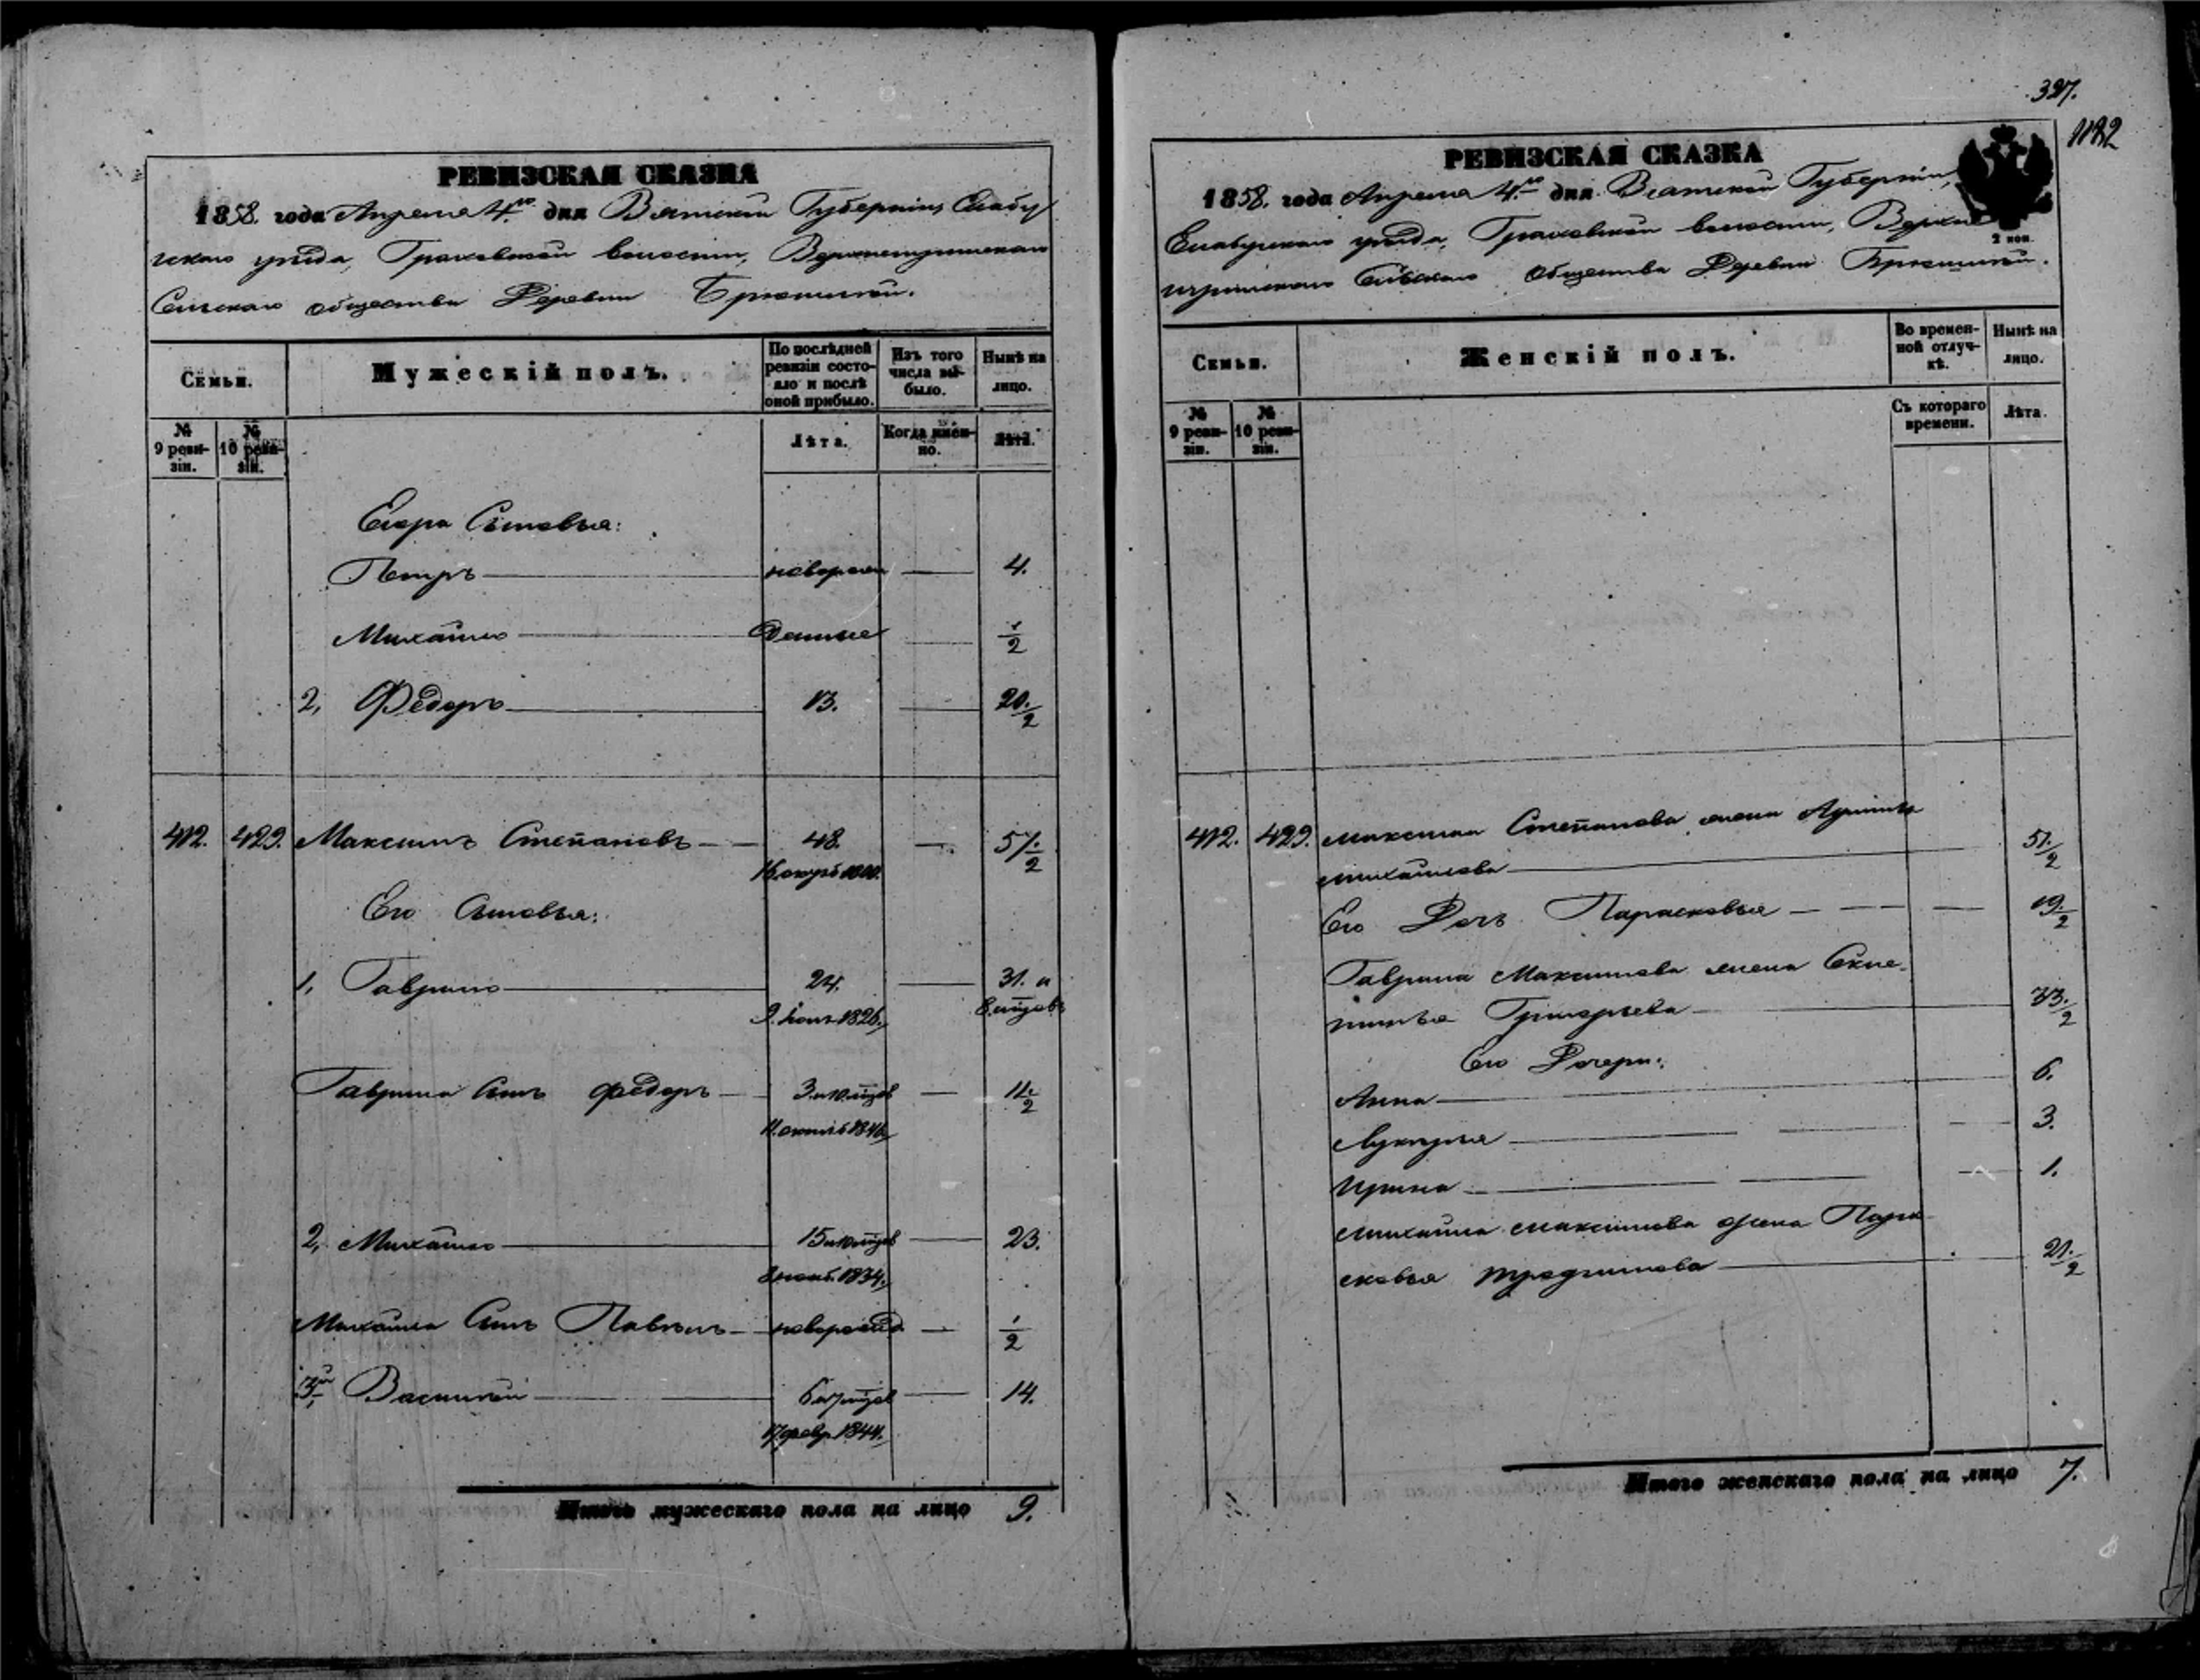 РЕВИЗСКАЯ СКАЗКА
1858. года Апреля 4.го дня Вятской Губерніи, Елабу
гскаго уѣзда, Граховской волости,
Сельскаго общества Деревни
Семьи.
Мужескій полъ.
По послѣдней ревизіи состояло и послѣ оной прибыло.
Изъ того числа выбыло.
Нынѣ на лицо.
№ 9 ревизіи.
№ 10 ревизіи.
Лѣта.
Когда имен-но.
Лѣта.
Егора Сыновья:
Петръ 4.
Михайло 1/2
2, Федоръ 13. 20. 1/2
412. 429. Максимъ Степановъ 43. 51. 1/2
Его Сыновья:
1, Гаврило 24. 31. и
1826.
8. мѣцовъ
Гаврила Сынъ Федоръ 3. и 10. мѣцов 11. 1/2
2, Михайло 15 и 10 мѣцов 23.
1834.
Михайла Сынъ Павелъ новорожд. 1/2
3й, Василей 6 и 7 мѣцов 14.
17 февр. 1844.
Итого мужескаго пола на лицо 9.
327.
1182
РЕВИЗСКАЯ СКАЗКА
1858. года Апреля 4.го дня Вятской Губерніи,
Елабугскаго уѣзда, Граховской волости, Верхне
2 коп.
Сельскаго Общества Деревни
Семьи.
Женскій полъ.
Во времен-ной отлуч-кѣ.
Нынѣ на лицо.
№ 9 реви-зіи.
№ 10 реви-зіи.
Съ котораго времени.
Лѣта.
412. 429. Максима Степанова жена
Михайлова 51. 1/2
Его Дочь Парасковья 19. 1/2
Гаврила Максимова жена
Григорьева 33. 1/2
Его Дочери:
Анна 6.
Лукерья 3.
Ирина 1.
Михайла Максимова жена Пара
сковья 21. 1/2
Итого женскаго пола на лицо 7.